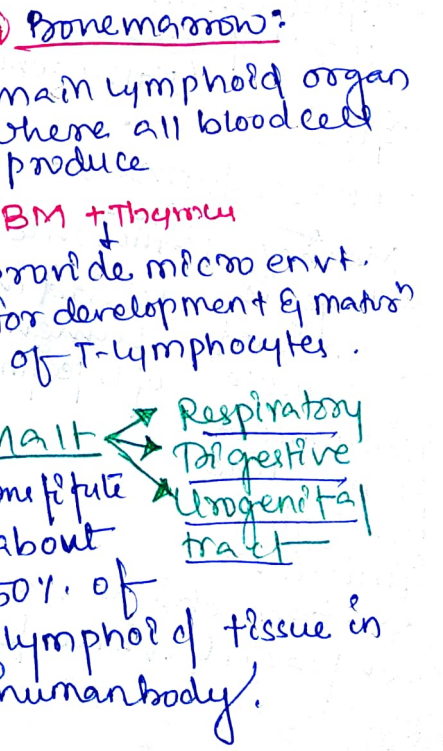 Bonemarrow:
main lymphoid organ
where all blood cell
produce
BM + Thymus
↓
provide micro envt.
for development & matur^n
of T-lymphocytes.
Malt
Respiratory
Digestive
Urogenital
tract
constitute
about
50% of
lymphoid tissue in
human body.